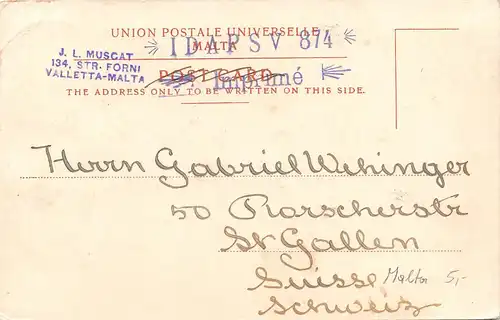 UNION POSTALE UNIVERSELLE
MALTA
IDAPSV 874
J. L. MUSCAT
134, STR. FORNI
VALLETTA-MALTA
POST CARD
Imprimé
THE ADDRESS ONLY TO BE WRITTEN ON THIS SIDE.
Herrn Gabriel Wehinger
50 Rorscherstr
St Gallen
Suisse
Malta 5,-
Schweiz